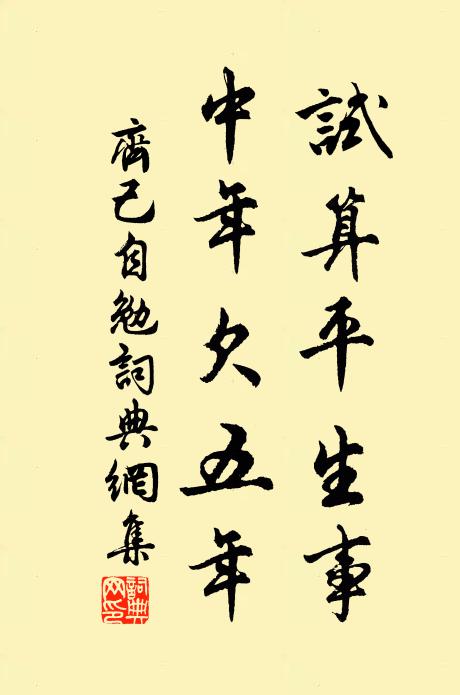 試算平生事
中年欠五年
齊己自勉詞典網集
詞典网印